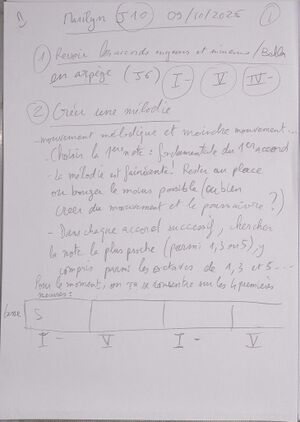 Marilyn J10 09/10/2025 1
1) Revoir les accords majeurs et mineurs /
en arpège (J6) I- V IV-
2) Créer une mélodie
mouvement mélodique et moindre mouvement...
- Choisir la 1ère note : fondamentale du 1er accord
- La mélodie est fainéante : Rester au place
ou bouger le moins possible (ou bien
créer du mouvement et le poursuivre ?)
- Dans chaque accord successif, chercher
la note la plus proche (parmi 1, 3 ou 5) y
compris parmi les octaves de 1, 3 et 5...
Pour le moment, on va se concentrer sur les 4 premières
mesures :
5
I- V I- V